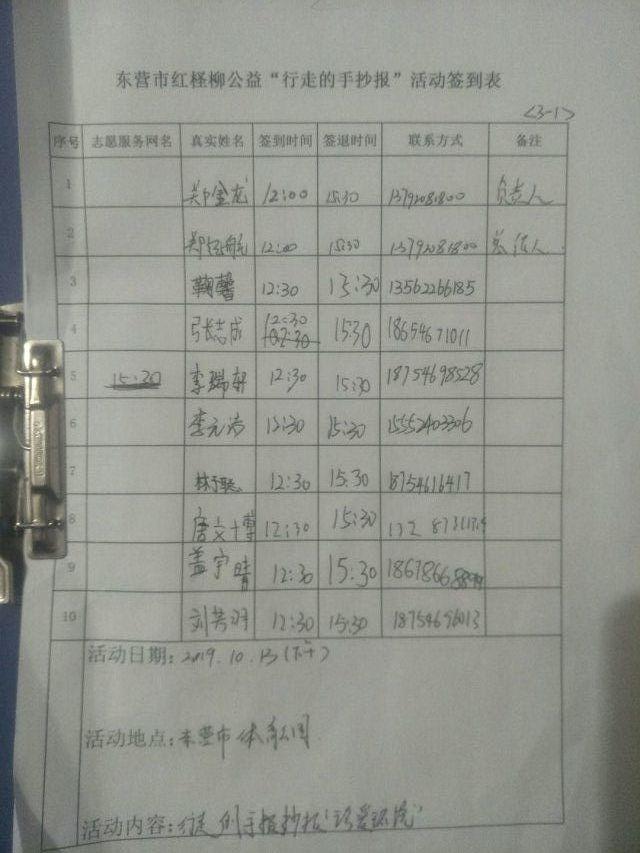 东营市红柽柳公益“行走的手抄报”活动签到表
<3-1>
序号 志愿服务网名 真实姓名 签到时间 签退时间 联系方式 备注
1 郑金龙 12:00 15:30 13792081800 负责人
2 12:00 15:30 13792081800
3 鞠馨 12:30 15:30 13562266185
4 张志成 12:30 15:30 18654671011
5 15:30 李瑞轩 12:30 15:30 18754698528
6 12:30 15:30 15552403306
7 12:30 15:30 8754616417
8 唐文博 12:30 15:30
9 盖宇晴 12:30 15:30
10 刘芳羽 12:30 15:30 18754696013
活动日期: 2019.10.13(下午)
活动地点: 东营市体育公园
活动内容: